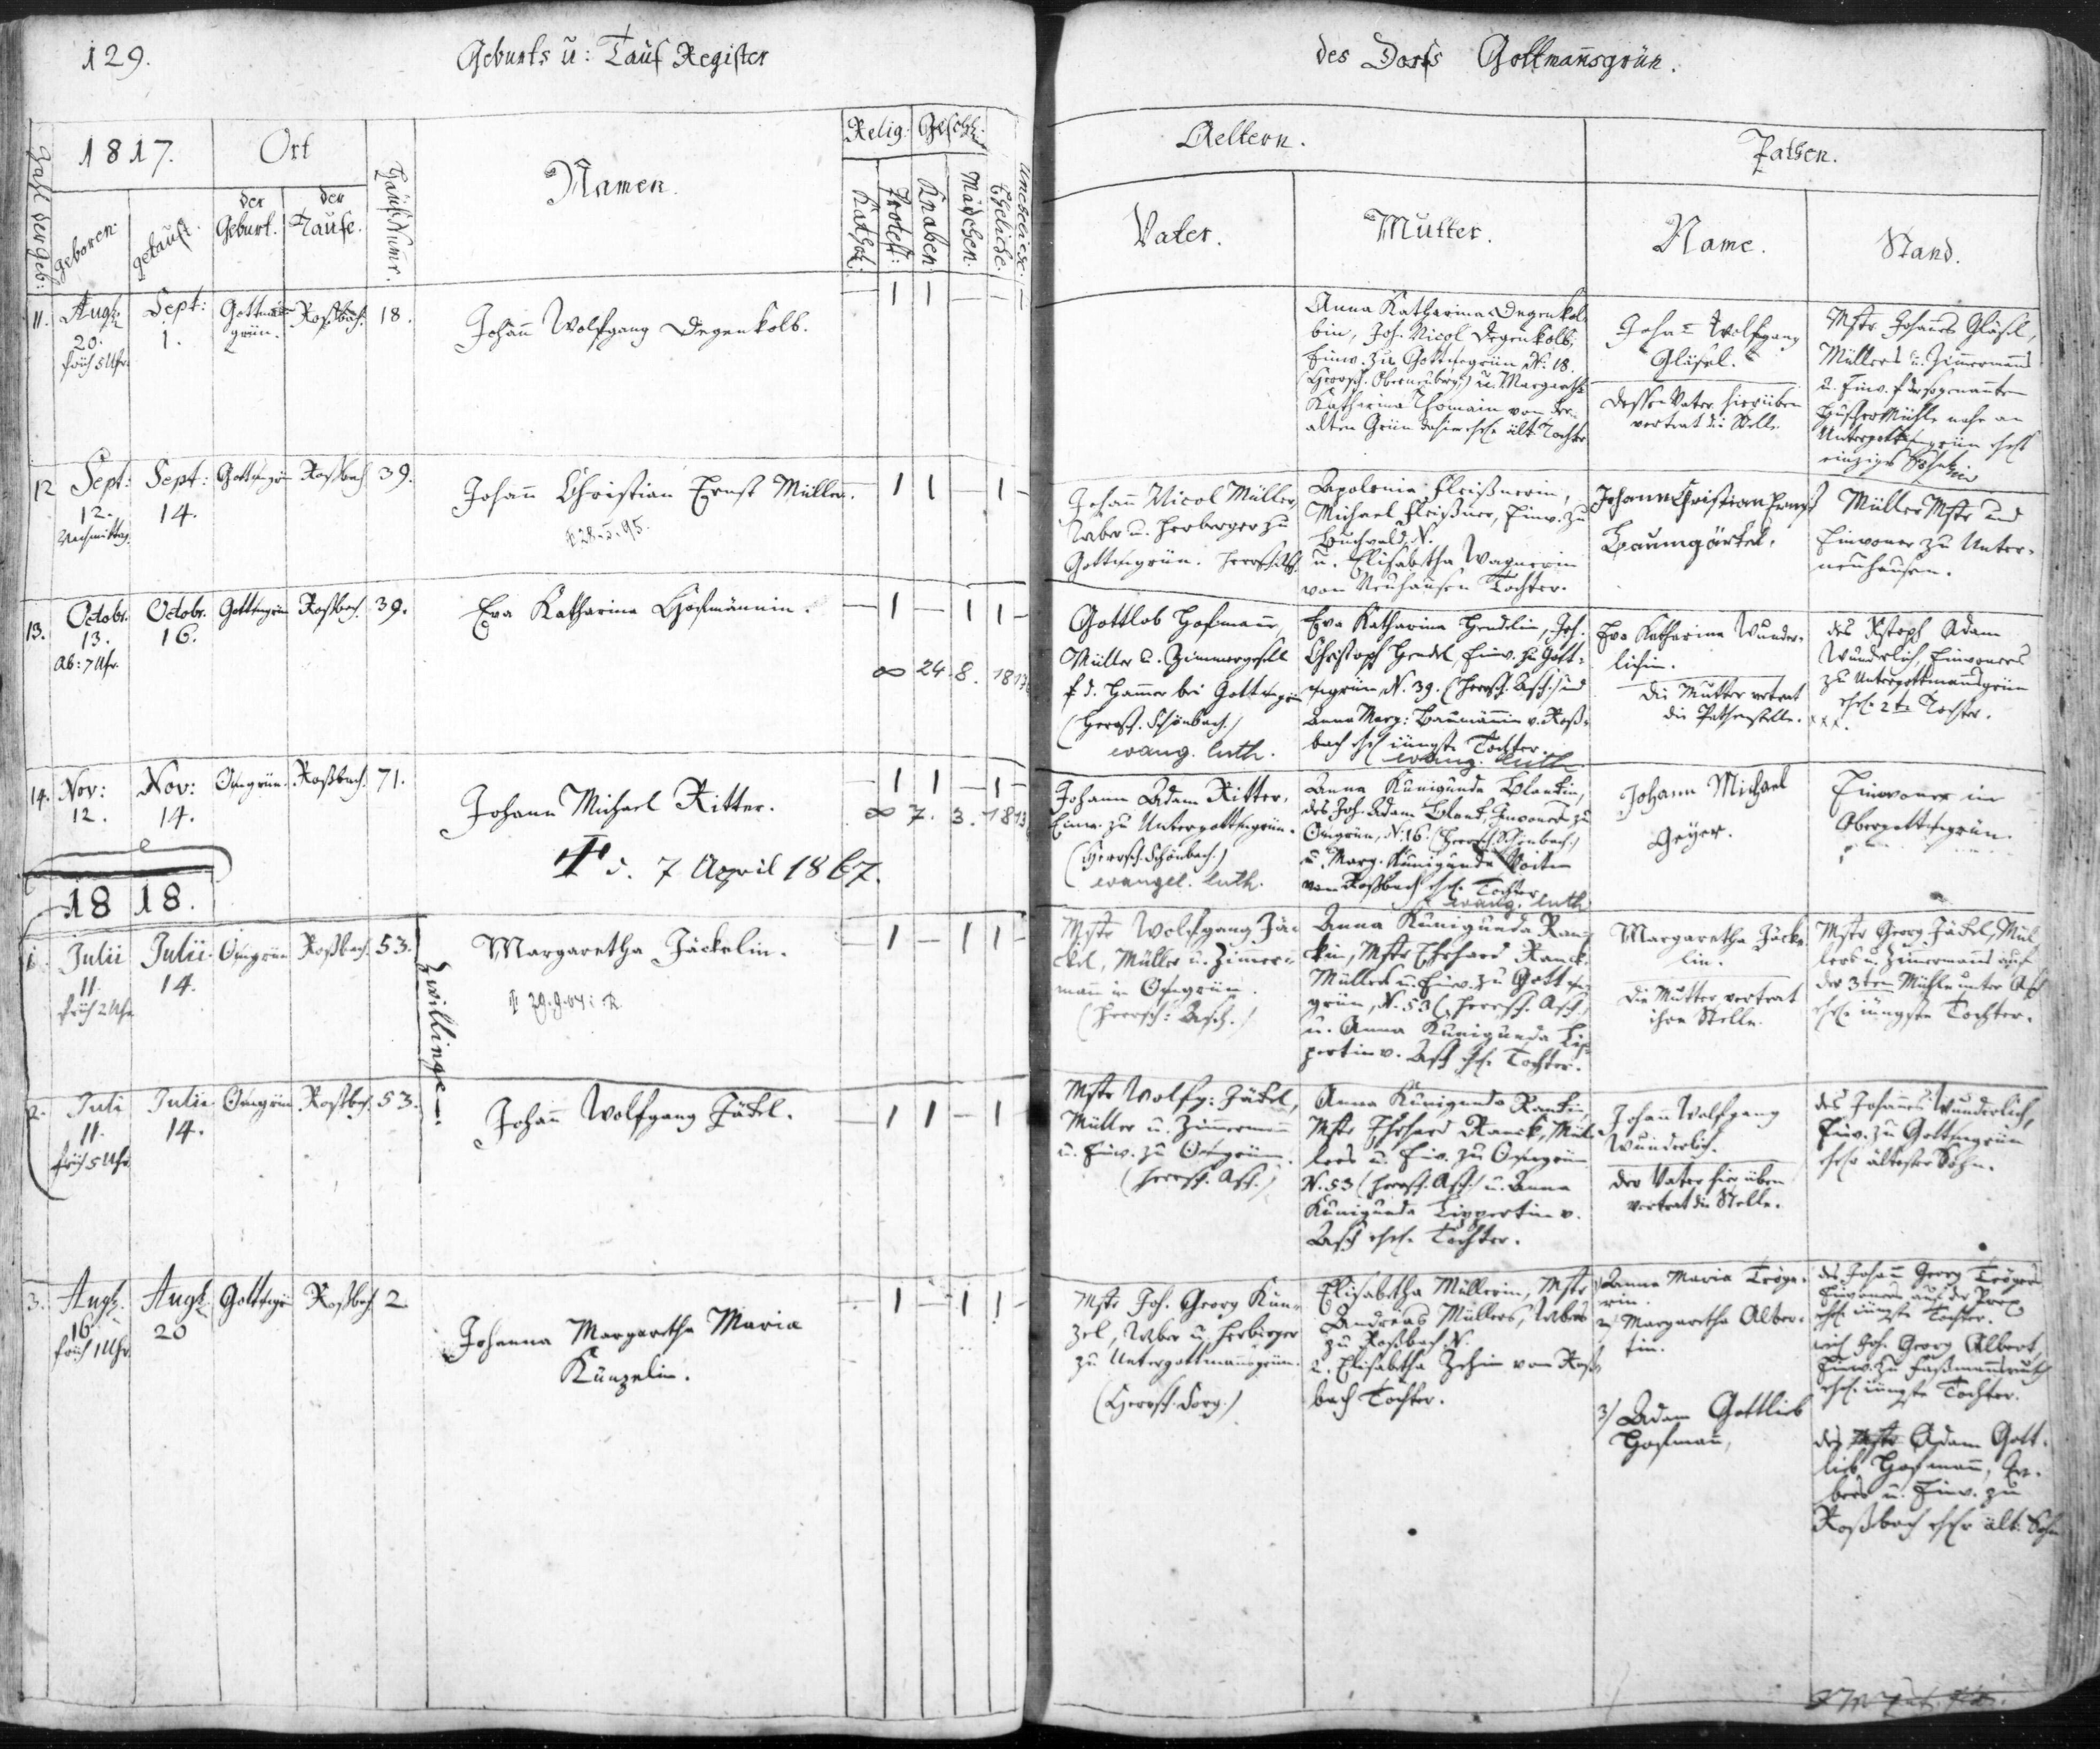 129.
Geburts u: Tauf Register
des Dorfs Gottmañsgrün.
Zahl der Geb:
1817.
geboren.
getauft.
Ort
der Geburt.
der Taufe.
Hausnumr.
Namen.
Relig:
Kathol:
Protest:
Geschl:
Knaben.
Mädchen.
Eheliche.
Uneheliche.
Aeltern.
Vater.
Mutter.
Pathen.
Name.
Stand.
11.
Aug:
20.
früh 5 Uhr.
Sept:
1.
Gottmañs-
grün.
Roßbach.
18.
Johañ Wolfgang Degenkolb.
Anna Katharina Degenkol-
bin, Joh. Nicol Degenkolb,
Einw. zu Gottmsgrün N. 18.
u. Margareth
Katharina
alten Grün ält. Tochter
Johañ Wolfgang
Gläsel.
dessen Vater hierüber
vertrat die Stelle.
Mstr. Johannes Gläsel,
Müllers u. Zimmermanns
u. Einw. f der sogenannten
Mühle nahe an
Untergottmsgrün ehel
einziger
12
Sept:
12.
Nachmittag.
Sept:
14.
Gottmsgrün
Roßbach
39.
Johañ Christian Ernst Müller.
28.5.95.
Johañ Nicol Müller,
Weber u. Herberger zu
Gottmsgrün.
Apolonia Fleißnerin,
Michael Fleißner, Einw. zu
Buchwald N.
u. Elisabetha Wagnerin
von Neuhausen Tochter.
Johann Christian Ernst
Baumgärtel.
Müller Mstr und
Einwoner zu Unter-
neuhausen.
13.
Octobr.
13.
Ab: 7 Uhr.
Octobr.
16.
Gottmsgrün
Roßbach.
39.
Eva Katharina Hofmännin.
∞ 24. 8. 18
Gottlob Hofmann,
Müller u. Zimmergesell
f d. Hammer bei Gottmsgrün
(Herrsch. Schönbach.)
evang. luth.
Eva Katharina Hendelin, Joh.
Christoph Hendel, Einw. zu Gott-
msgrün N. 39. (Herrsch. Asch.) und
Anna Marg: Baumännin v. Roß-
bach ehel jüngste Tochter.
evang. luth.
Eva Katharina Wunder-
lichin.
Die Mutter vertrat
die Pathenstelle.
des Kstoph Adam
Wunderlich, Einwoners
zu Untergottmansgrün
ehel. 2te Tochter.
14.
Nov:
12.
Nov:
14.
Gmsgrün.
Roßbach.
71.
Johann Michael Ritter.
∞ 7. 3. 18
d. 7 April 1867.
Johann Adam Ritter,
Einw. zu Untergottmsgrün.
(Herrsch. Schönbach.)
evangel. luth.
Anna Kunigunda Blankin,
des Joh. Adam Blank, Einwoner zu
Gmsgrün, N. 16. (Herrsch. Schönbach.)
u. Marg. Kunigunda Voiten
von Roßbach ehel. Tochter.
evang. luth.
Johann Michael
Geyer.
Einwoner in
Obergottmsgrün.
1818.
1.
Julii
11.
früh 2 Uhr
Julii.
14.
Gmsgrün
Roßbach.
53.
Zwillinge
Margaretha Jäckelin.
29.9.04
Mstr Wolfgang Jä-
ckel, Müller u. Zimmer-
mann in Gmsgrün.
(Herrsch: Asch.)
Anna Kunigunda Ran-
kin, Mstr Ehrhard Ranck,
Müllers u. Einw. zu Gottms-
grün, N. 53 (Herrsch. Asch.)
u. Anna Kunigunda Lip-
pertin v. Asch ehel. Tochter.
Margaretha Jäcke-
lin.
Die Mutter vertrat
ihre Stelle.
Mstr Georg Jäckel, Mül-
lers u. Zimermanns auf
der 3ten Mühle unter Asch
ehel. jüngste Tochter.
2.
Juli
11.
früh 5 Uhr
Julii
14.
Gmsgrün
Roßbach.
53.
Johañ Wolfgang Jäckel.
Mstr Wolfg: Jäckel,
Müller u. Zimmermann
u. Einw. zu Gmsgrün.
(Herrsch. Asch.)
Anna Kunigunda Rankin,
Mstr Ehrhard Ranck, Mül-
lers u. Einw. zu Gmsgrün
N. 53 (Herrsch. Asch.) u. Anna
Kunigunda Lippertin v.
Asch ehel. Tochter.
Johañ Wolfgang
Wunderlich.
Der Vater hierüber
vertrat die Stelle.
des Johannes Wunderlich,
Einw. zu Gottmsgrün
ehel. ältester Sohn.
3.
Aug:
16.
früh 1 Uhr.
Aug:
20
Gottmsgrün
Roßbach
2.
Johanna Margaretha Maria
Künzelin.
Mstr Joh. Georg Kün-
zel, Weber u. Herberger
zu Untergottmannsgrün.
(Herrsch. Sorg.)
Elisabetha Müllerin, Mstr
Andreas Müllers, Webers
zu Roßbach N.
u. Elisabetha Zehin von Roß-
bach Tochter.
1) Anna Maria Tröge-
rin.
2) Margaretha Alber-
tin.
3) Adam Gottlieb
Hofmañ,
des Johañ Georg Trögers
Einwoners auf der
ehl. jüngste Tochter.
Joh. Georg Albert,
Einw. zu
ehel. jüngste Tochter.
des Mstr Adam Gott-
lieb Hofmañ, We-
bers u. Einw. zu
Roßbach ehel. ält. Sohn